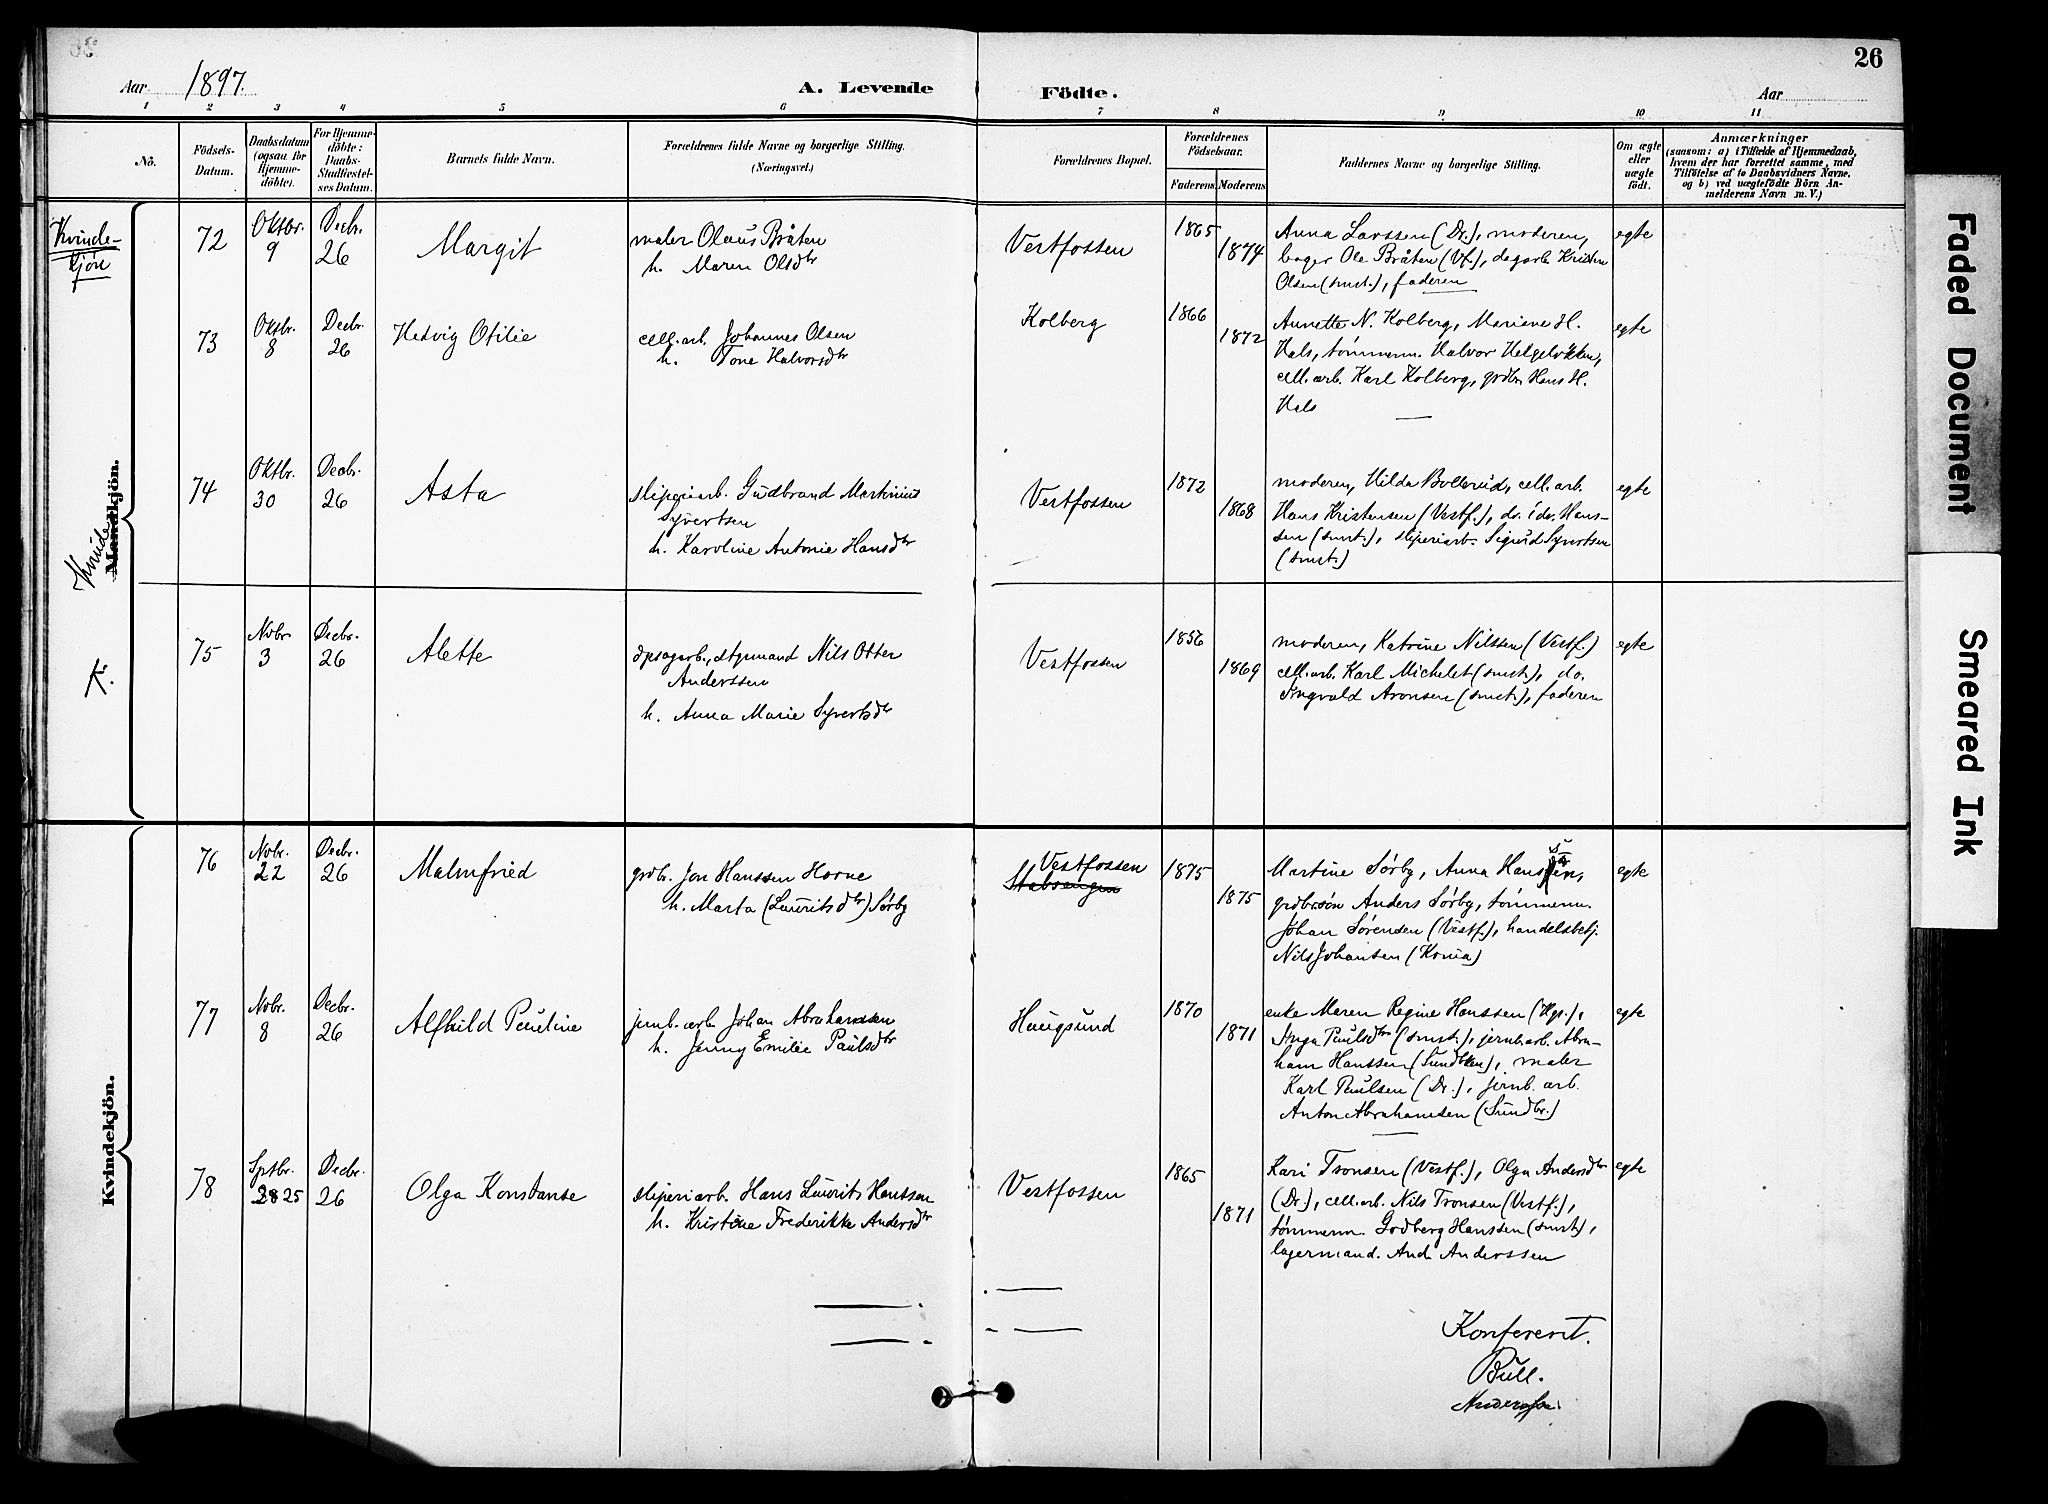 26
Aar 1897. A. Levende Födte. Aar
1 2 3 4 5 6 7 8 9 10 11
No.
Födsels-
Datum.
Daabsdatum
(ogsaa for
Hjemme-
döbte).
For Hjemme-
döbte:
Daabs-
Stadfæstel-
ses Datum.
Barnets fulde Navn.
Forældrenes fulde Navne og borgerlige Stilling.
(Næringsvei.)
Forældrenes Bopæl.
Forældrenes
Födselsaar.
Faderens Moderens
Faddernes Navne og borgerlige Stilling.
Om ægte
eller
uægte
födt.
Anmærkninger
(saasom: a) i Tilfælde af Hjemmedaab,
hvem der har forrettet samme, med
Tilföielse af to Daabsvidners Navne,
og b) ved uægtefödte Börn An-
melderens Navn m. V.)
Kvinde-
kjøn
Mandkjön.
Kvinde
K.
72
Oktbr.
9
Decbr.
26
Margit
maler Olaus Bråten
h. Maren Olsdtr
Vestfossen
1865
1874
Anna Larssen (Dr.), moderen,
bager Ole Bråten (Vf.), dagarb. Kristen
Olsen (smst.), faderen
egte
73
Oktbr.
8
Decbr.
26
Hedvig Otilie
cell.arb. Johannes Olsen
h. Tone Halvorsdtr
Kolberg
1866
1872
Annette N. Kolberg, Mariane H.
Hals, tømmerm. Halvor Helgeløkken,
cell.arb. Karl Kolberg, grdbr. Hans H.
Hals
egte
74
Oktbr.
30
Decbr.
26
Asta
sliperiarb. Gudbrand Martinius
Syvertsen
h. Karoline Antonie Hansdtr
Vestfossen
1872
1868
moderen, Hilda Bollerud, cell.arb.
Hans Kristensen (Vestf.), do. Hans-
sen (smst.), sliperiarb. Sigurd Syvertsen
(smst.)
egte
75
Novbr.
3
Decbr.
26
Alette
Nils Otter
Anderssen
h. Anna Marie Syvertsdtr
Vestfossen
1856
1869
moderen, Katrine Nilssen (Vestf.)
cell.arb. Karl Michelet (smst.), do.
Ingvald Aronsen (smst.), faderen
egte
Kvindekjön.
76
Novbr.
22
Decbr.
26
Malmfried
grdbr. Jon Hanssen Horne
h. Marta (Lauritsdtr) Sørby
Vestfossen
Stabsengen
1875
1875
Martine Sørby, Anna Hanssen,
grdbrsøn Anders Sørby, tømmerm.
Johan Sørensen (Vestf.), handelsbetj.
Nils Johansen (Kr.nia)
egte
77
Novbr.
8
Decbr.
26
Alfhild Pauline
jernb.arb. Johan Abrahamssen
h. Jenny Emilie Paulsdtr
Haugsund
1870
1871
enke Maren Regine Hanssen (Hgs.),
Inga Paulsdtr (smst.), jernb.arb. Abra-
ham Hanssen, maler
Karl Paulsen (Dr.), jernb.arb.
Anton Abrahamsen (Sundbr.)
egte
78
Sptbr.
28 25
Decbr.
26
Olga Konstanse
sliperiarb. Hans Laurits Hanssen
h. Kristine Frederikke Andersdtr
Vestfossen
1865
1871
Kari Tronsen (Vestf.), Olga Andersdtr
(Dr.), cell.arb. Nils Tronsen (Vestf.),
tømmerm. Godberg Hanssen (smst.),
lagermand. And. Anderssen
egte
Konfererit.
Bull.
Faded Document
Smeared Ink